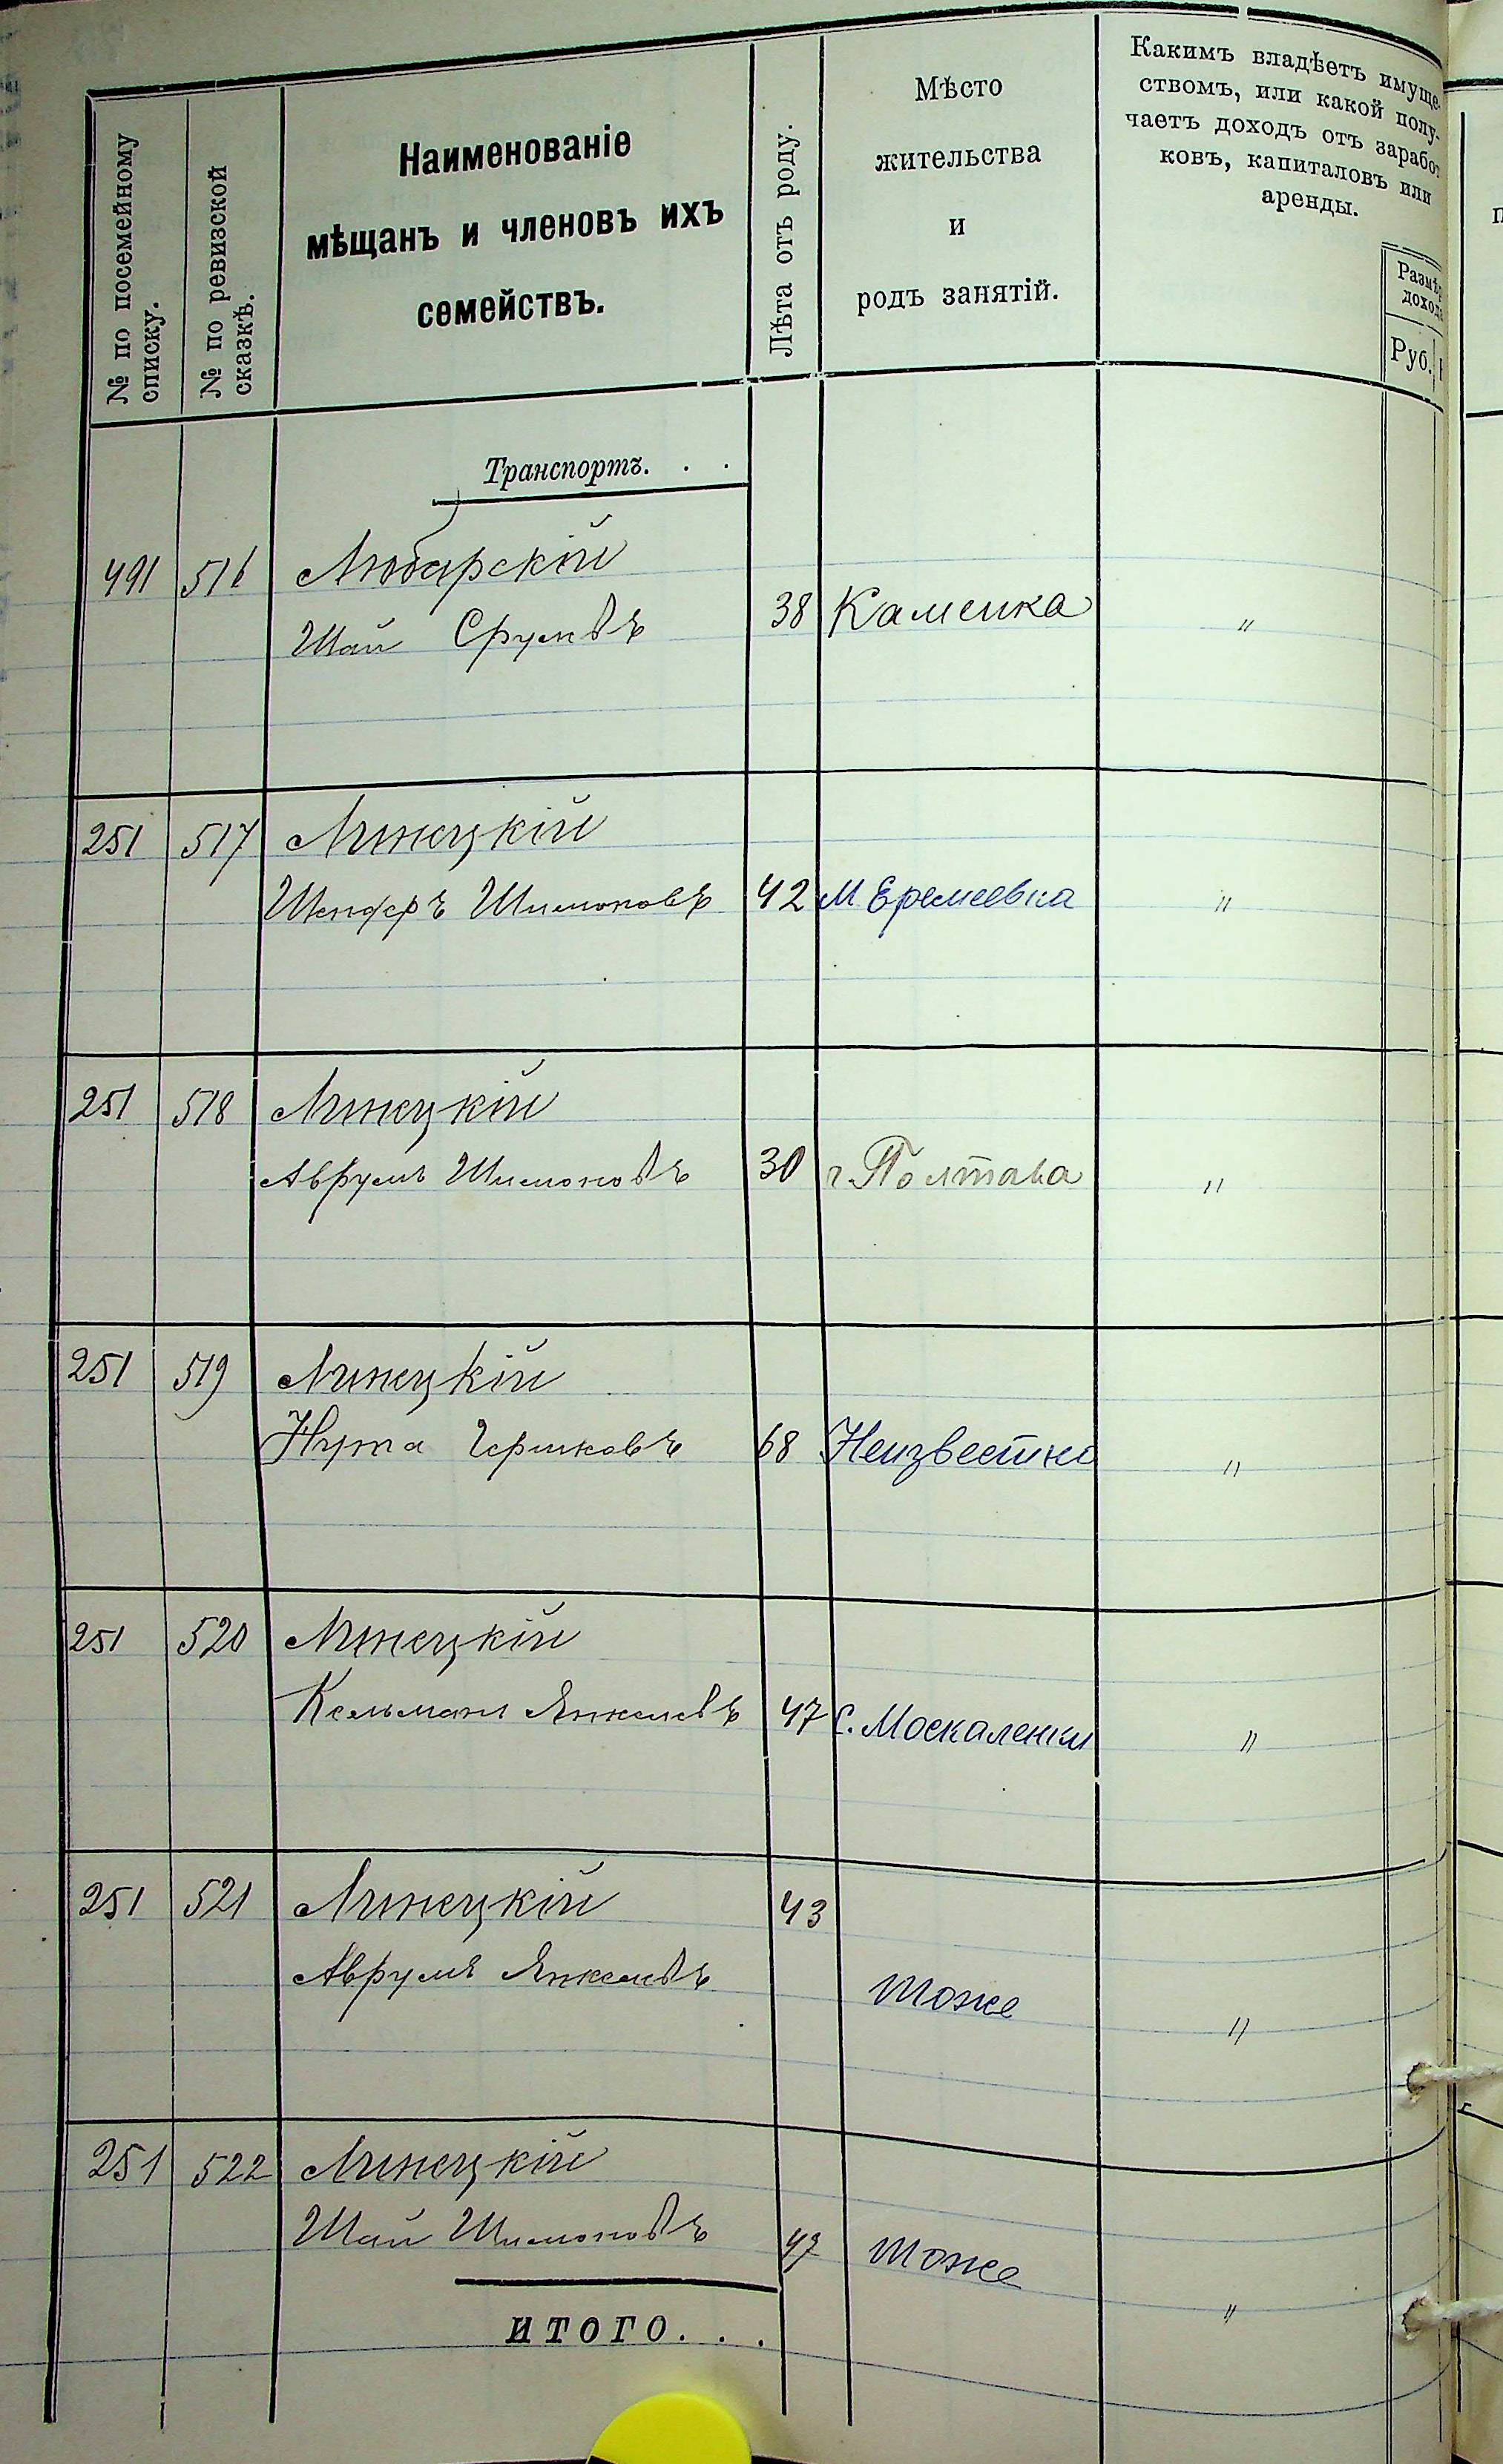 № по посемейному
списку.
№ по ревизской
сказкѣ.
Наименованіе
мѣщанъ и членовъ ихъ
семействъ.
Лѣта отъ роду.
Мѣсто
жительства
и
родъ занятій.
Какимъ владѣетъ имуще-
ствомъ, или какой полу-
чаетъ доходъ отъ заработ
ковъ, капиталовъ или
аренды.
Размѣр
дохода
Руб.
Транспортъ. . .
491 516 Любарскій
Шай Срулевъ 38 Каменка "
251 517 Линецкій
Шимоновъ 42 М Еремеевка "
251 518 Линецкій
Аврумъ Шимоновъ 30 г. Полтава "
251 519 Линецкій
Нута Гершковъ 68 Неизвестно "
251 520 Линецкій
Кельманъ Янкелевъ 47 С. Москаленки "
251 521 Линецкій 43
Аврумъ Янкелевъ тоже "
251 522 Линецкій
Шай Шимоновъ тоже "
ИТОГО. . .